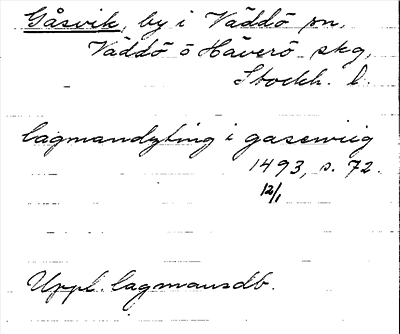 Gåsvik, by i Väddö sn,
Väddö o Häverö skg,
Stockh. l.
lagmandzting i gaseuiig
1493, s. 72.
12/1
Uppl. lagmansdb.